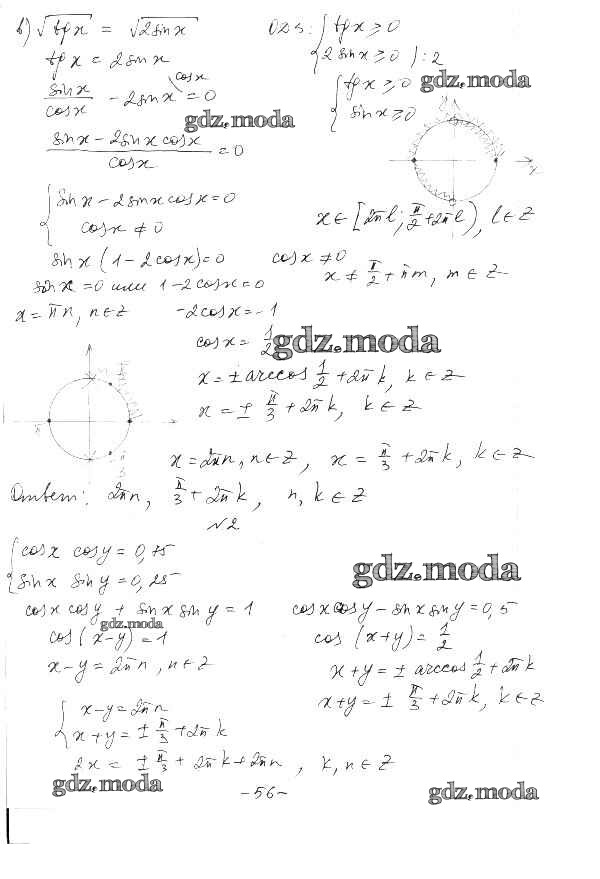 в) √tg x = √2sin x
ОДЗ: { tg x ≥ 0
{ 2 sin x ≥ 0 ) : 2
tg x = 2 sin x
{ tg x ≥ 0
{ sin x ≥ 0
gdz.moda
sin x / cos x - 2 sin x \cos x = 0
gdz.moda
(sin x - 2 sin x cos x) / cos x = 0
x
{ sin x - 2 sin x cos x = 0
{ cos x ≠ 0
x ∈ [2πl; π/2 + 2πl), l ∈ Z
sin x (1 - 2cos x) = 0
cos x ≠ 0
x ≠ π/2 + πm, m ∈ Z
sin x = 0 или 1 - 2 cos x = 0
x = πn, n ∈ Z
-2cos x = -1
cos x = 1/2
gdz.moda
x = ± arccos 1/2 + 2πk, k ∈ Z
x = ± π/3 + 2πk, k ∈ Z
π
π/3
x = 2πn, n ∈ Z, x = π/3 + 2πk, k ∈ Z
Ответ: 2πn, π/3 + 2πk, n, k ∈ Z
№2
{ cos x cos y = 0,75
{ sin x sin y = 0,25
gdz.moda
cos x cos y + sin x sin y = 1
cos x cos y - sin x sin y = 0,5
gdz.moda
cos (x-y) = 1
cos (x+y) = 1/2
x - y = 2πn, n ∈ Z
x + y = ± arccos 1/2 + 2πk
x + y = ± π/3 + 2πk, k ∈ Z
{ x - y = 2πn
{ x + y = ± π/3 + 2πk
2x = ± π/3 + 2πk + 2πn, k, n ∈ Z
gdz.moda
-56-
gdz.moda